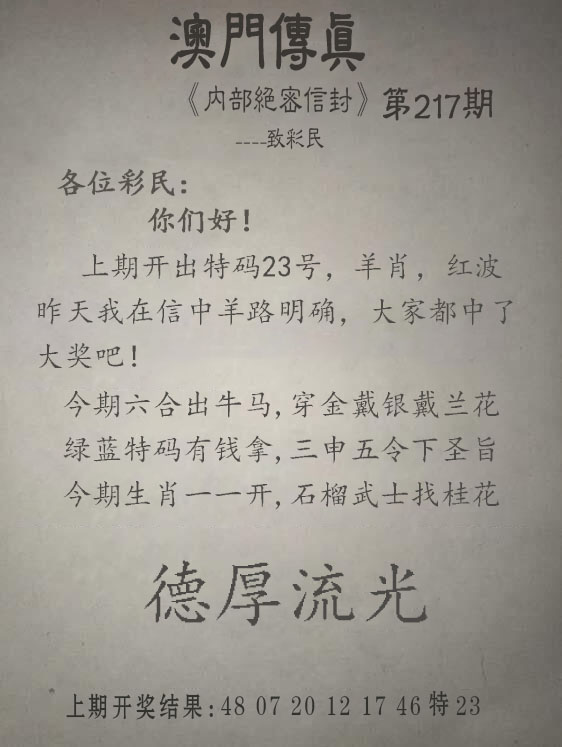 澳門傳眞
《内部絕密信封》第217期
----致彩民
各位彩民:
你们好!
上期开出特码23号，羊肖，红波
昨天我在信中羊路明确，大家都中了
大奖吧!
今期六合出牛马,穿金戴银戴兰花
绿蓝特码有钱拿,三申五令下圣旨
今期生肖一一开,石榴武士找桂花
德厚流光
上期开奖结果:48 07 20 12 17 46 特 23